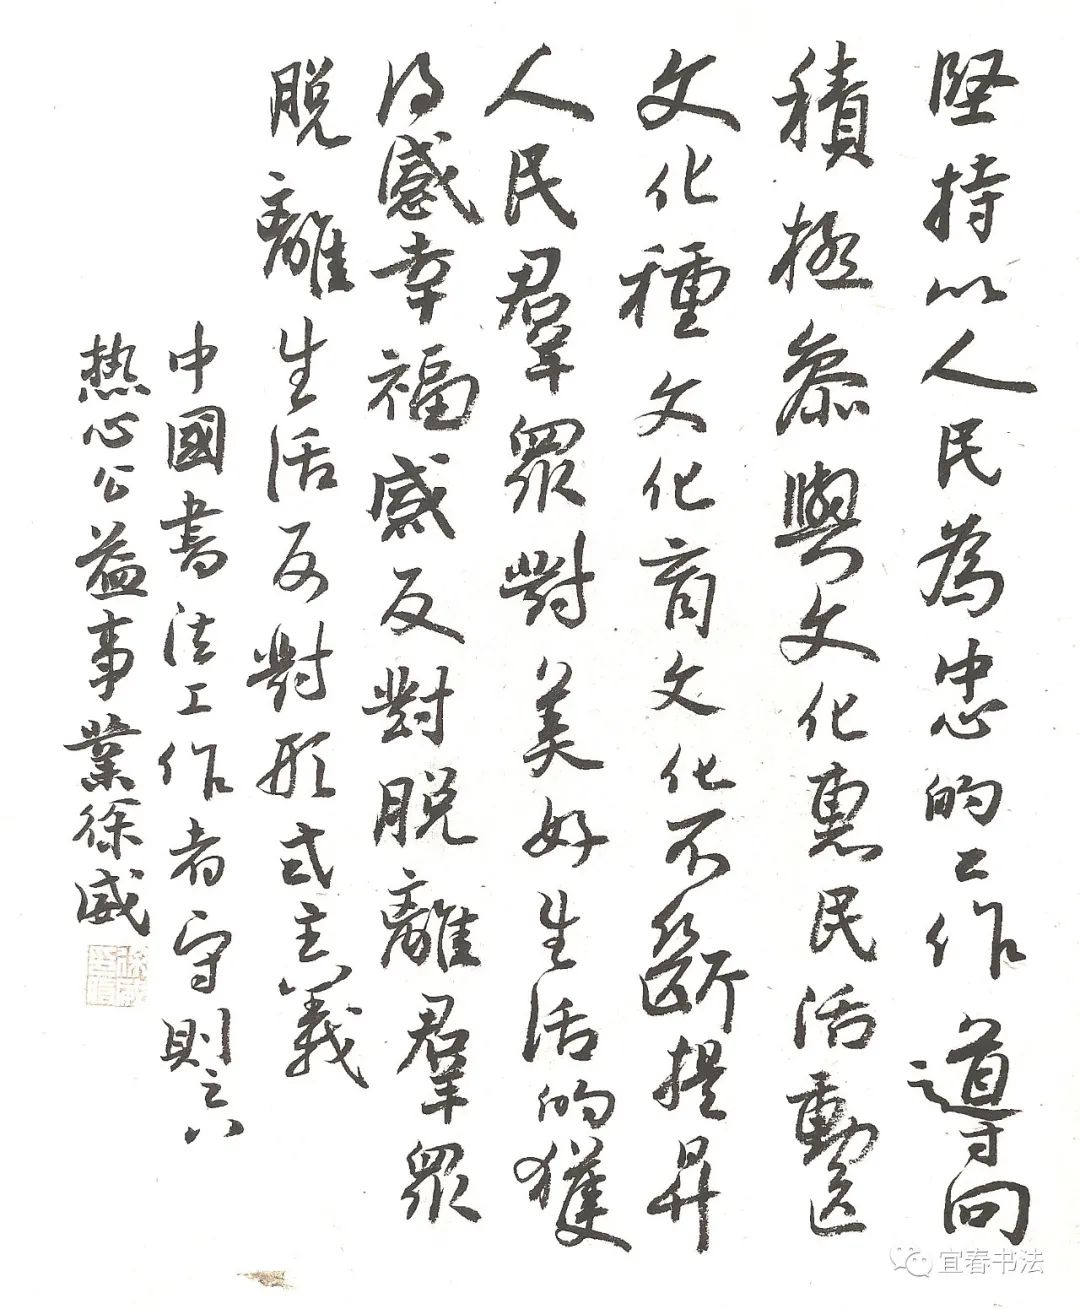 堅持以人民為中心的工作導向
積極參與文化惠民活動送
文化種文化育文化不斷提昇
人民羣眾對美好生活的獲
得感幸福感反對脫離羣眾
脫離生活反對形式主義
中國書法工作者守則之八
热心公益事業徐威
宜春书法